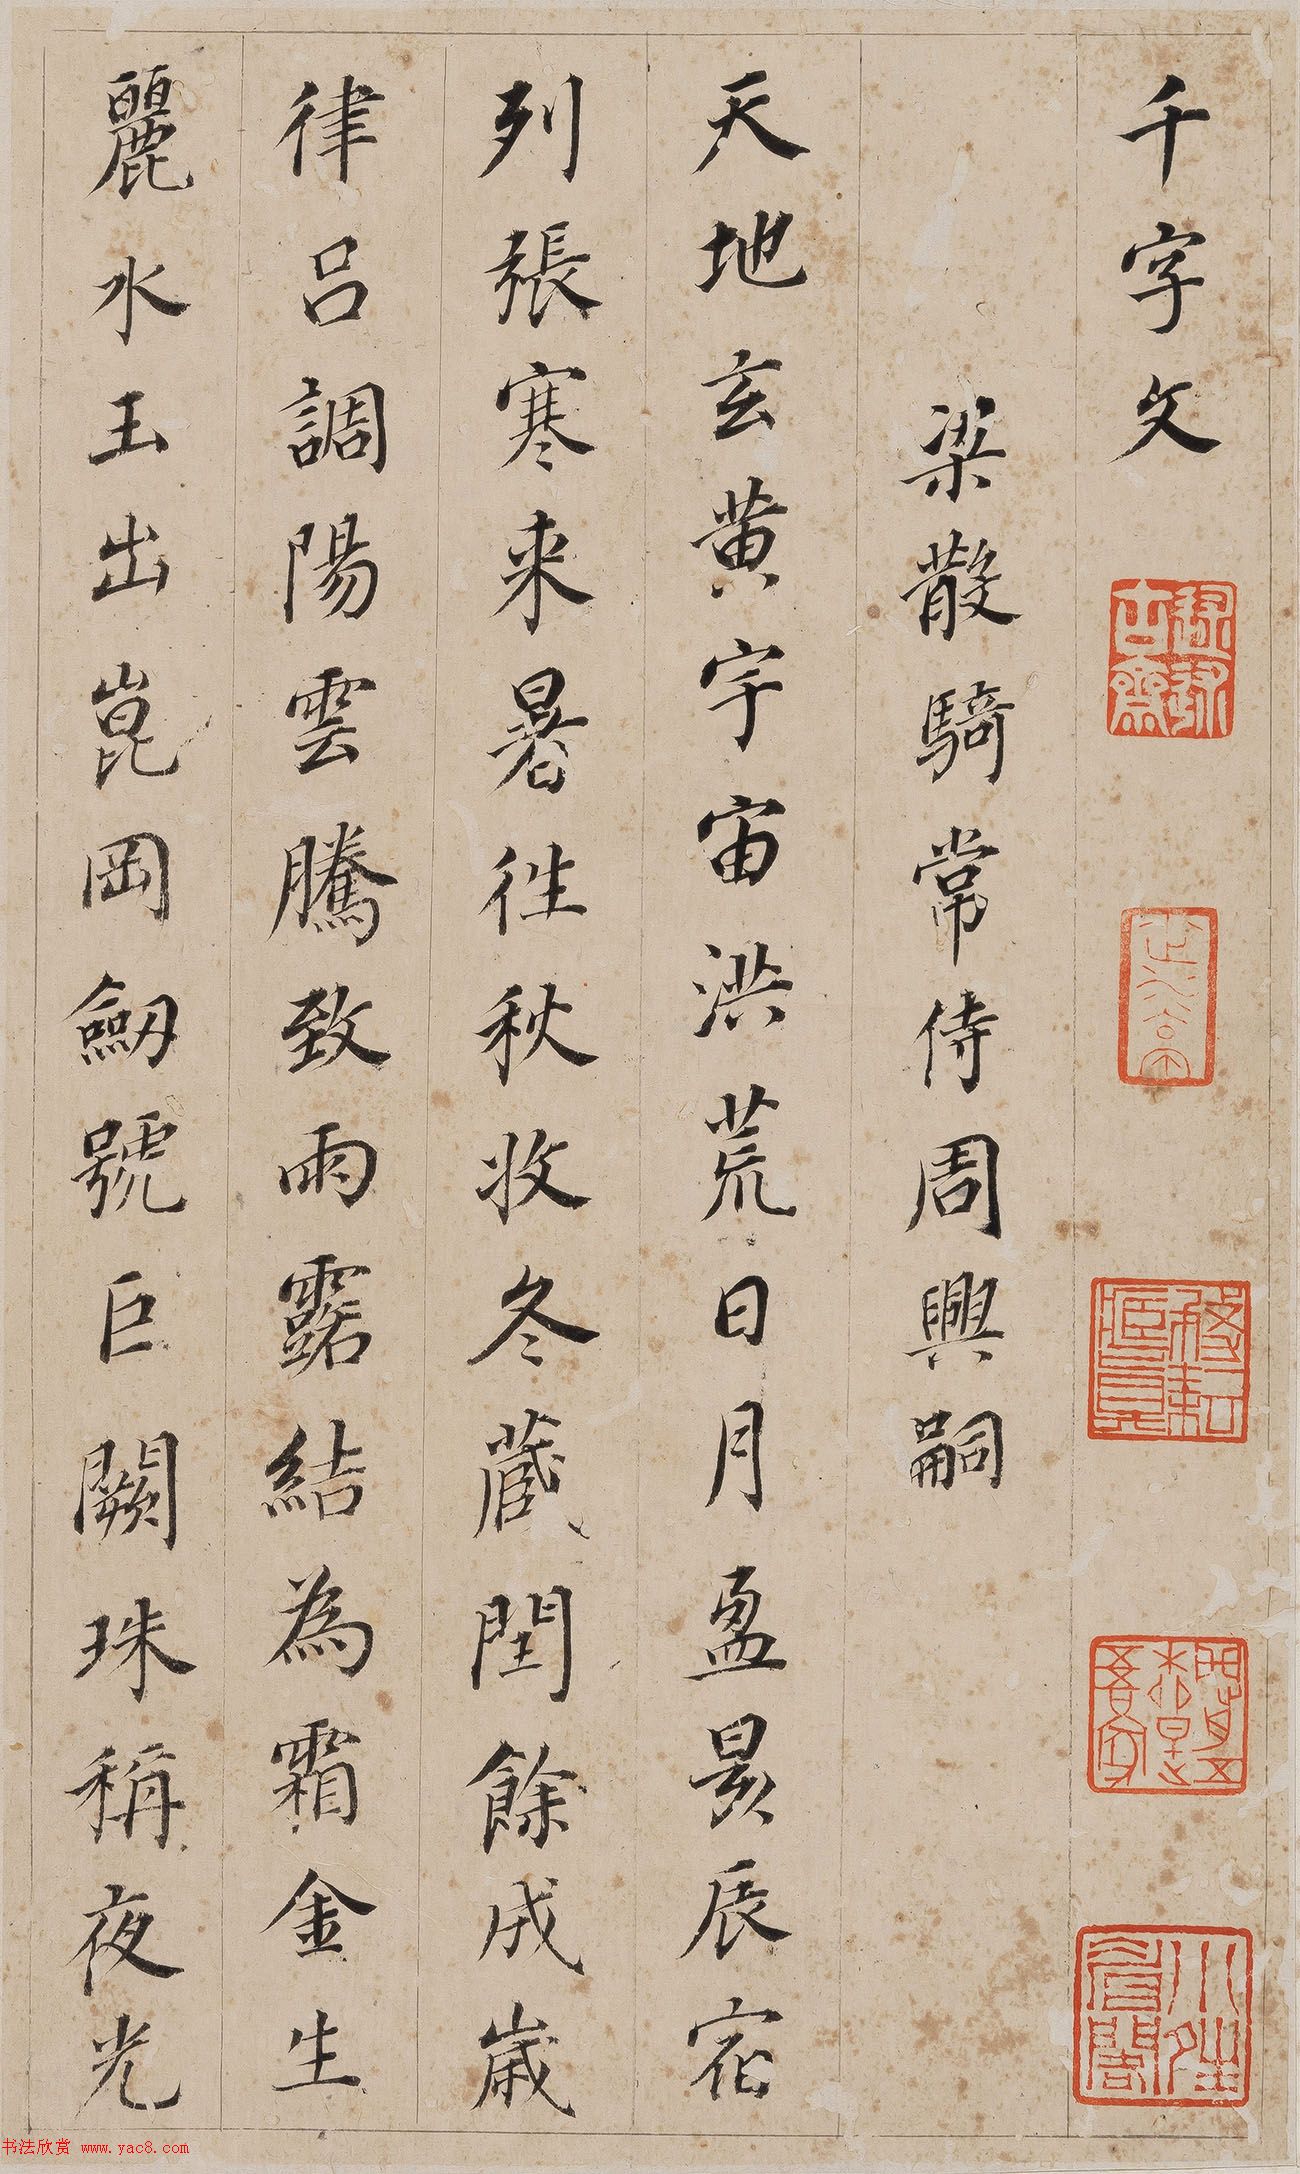 千字文
梁散騎常侍周興嗣
天地玄黄宇宙洪荒日月盈昃辰宿
列張寒来暑往秋收冬蔵閏餘成歲
律呂調陽雲騰致雨露結為霜金生
麗水玉出崑岡劒號巨闕珠稱夜光
书法欣赏 www.yac8.com